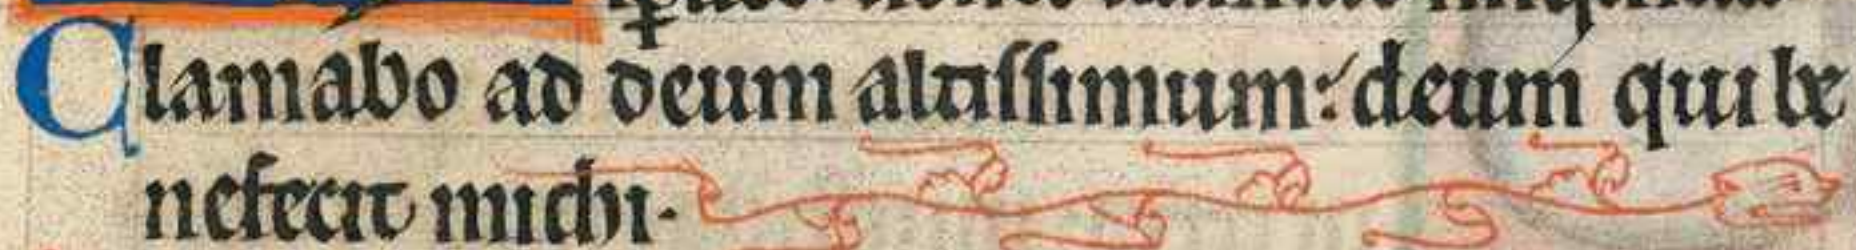 Clamabo ad deum altissimum: deum qui be
nefecit michi.